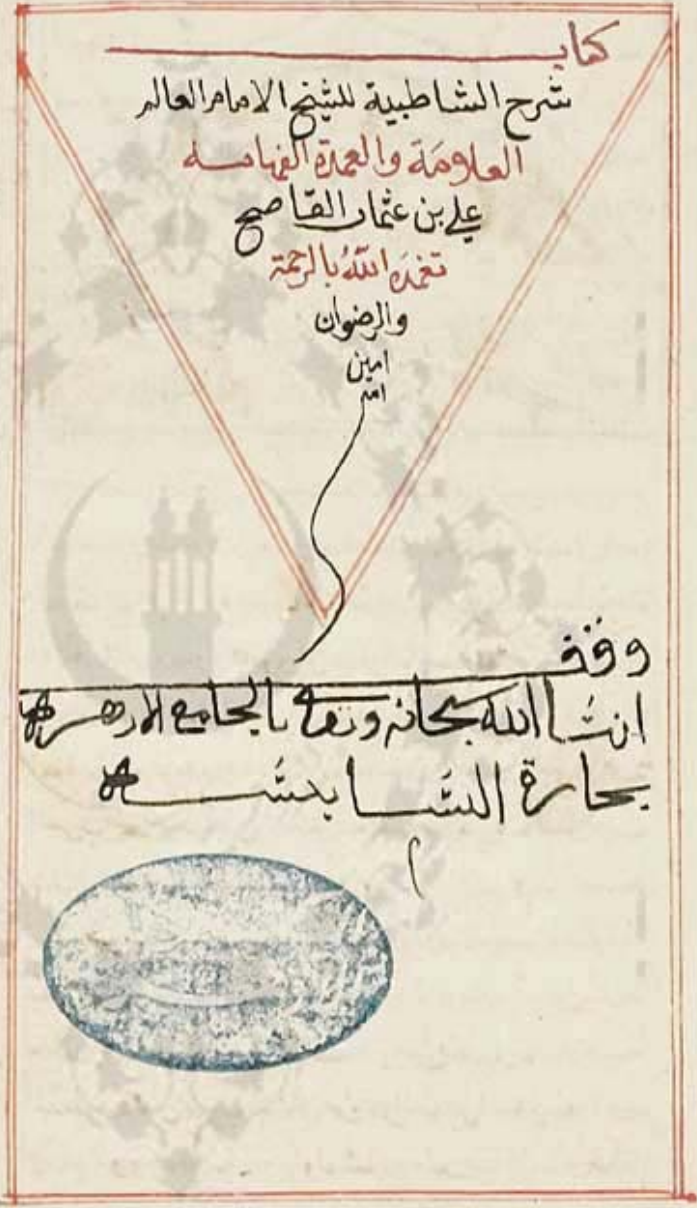 كتاب
شرح الشاطبية للشيخ الامام العالم
العلامة والعمدة الفهامه
علي بن عثمان القاصح
تغمده الله بالرحمة
والرضوان
امين
امر
وقف
ان شا الله سبحانه وتعالى بالجامع الازهر
بحارة